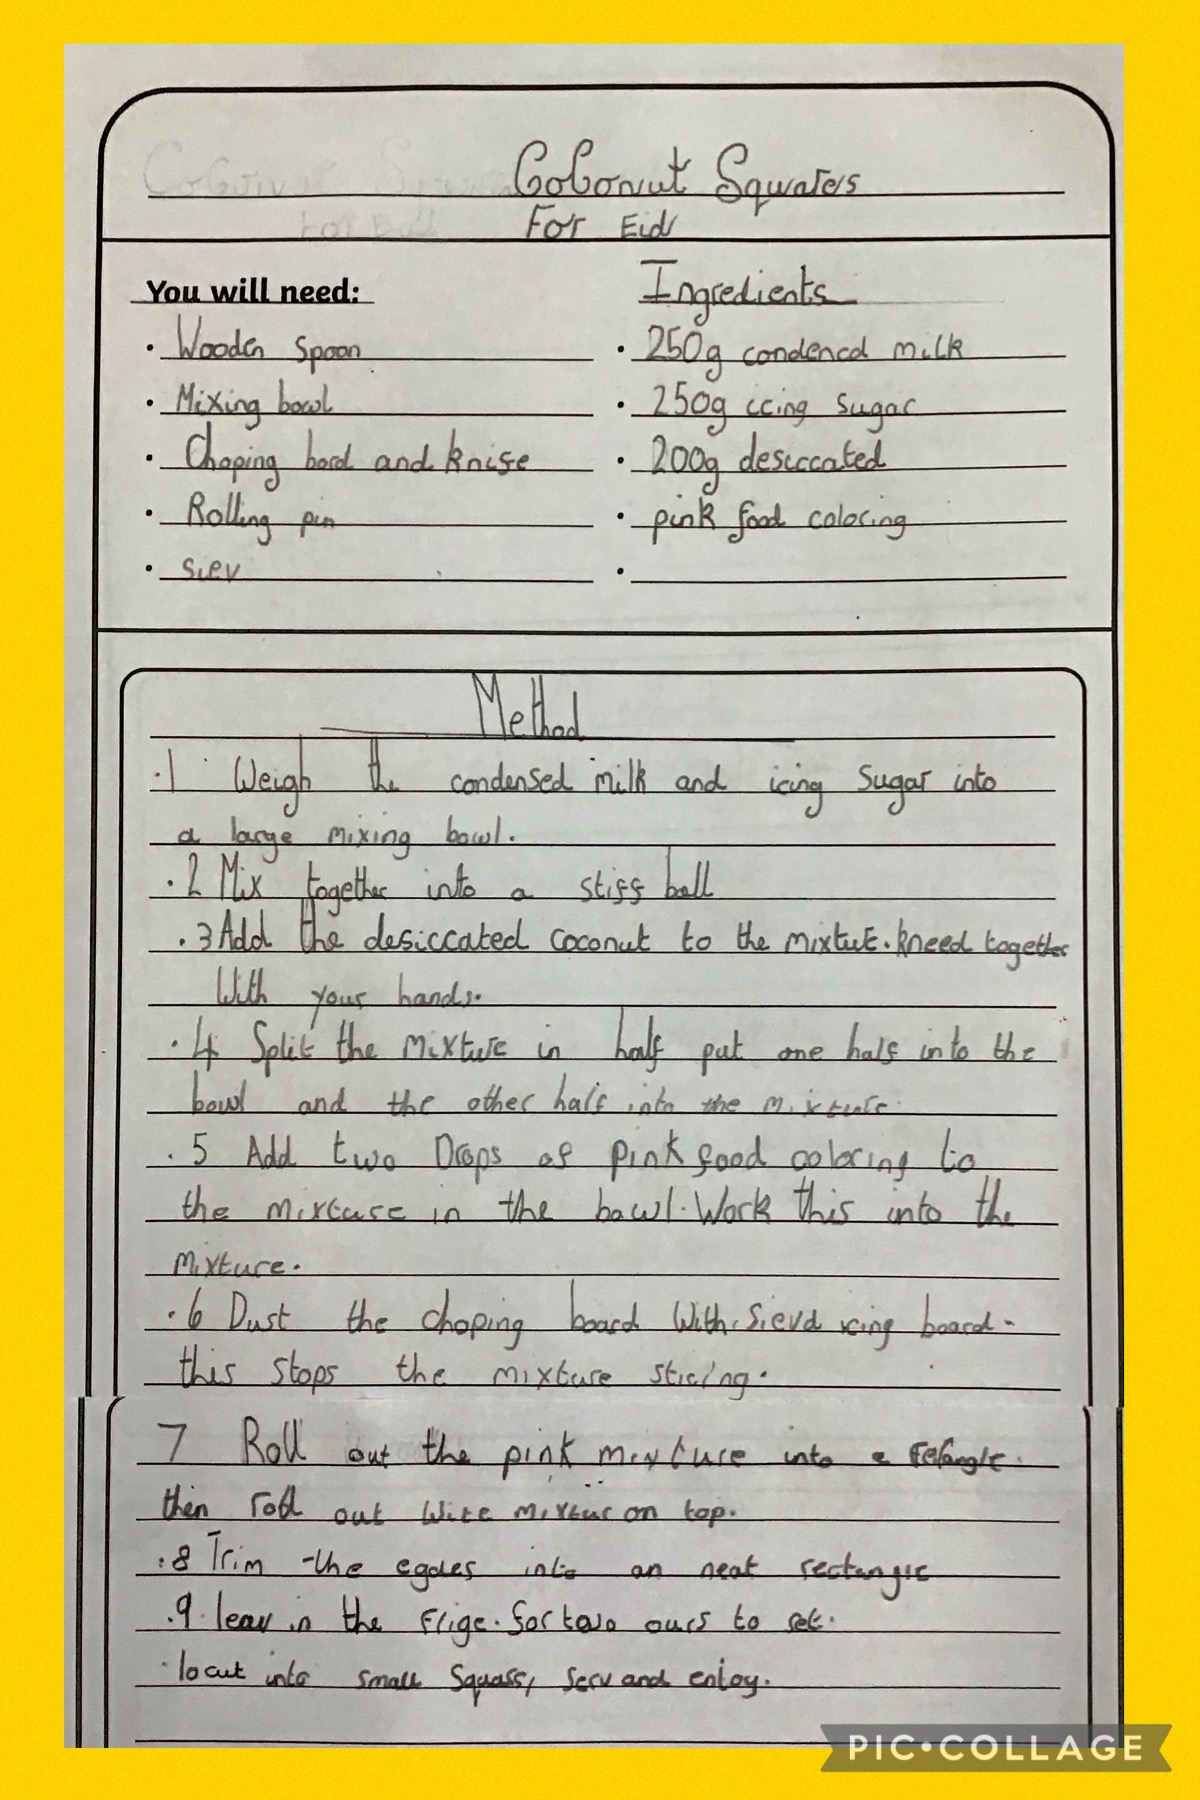 Coconut Squares
For Eid
You will need:
• Wooden Spoon
• Mixing bowl
• Choping bord and knife
• Rolling pin
• siev
Ingredients
• 250g condenced milk
• 250g icing sugar
• 200g desiccated
• pink food coloring
•
Method
.1 Weigh the condensed milk and icing sugar into
a large mixing bowl.
.2 Mix together into a stiff ball
.3 Add the desiccated coconut to the mixture. kneed together
With your hands.
.4 Split the mixture in half put one half into the
bowl and the other half into the mixture.
.5 Add two Drops of pink food coloring to
the mixture in the bowl. Work this into the
mixture.
.6 Dust the choping board With sievd icing board.
this stops the mixture sticing.
7 Roll out the pink mixture into a
then roll out Wite mixtur on top.
.8 Trim the egdes into an neat rectangle
.9 leav in the frige. for two ours to set.
.10 cut into small Squars, serv and entoy.
PIC•COLLAGE